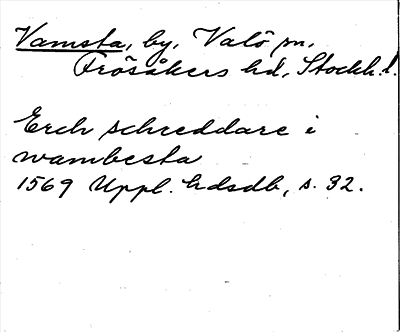 Vamsta, by, Valö sn,
Frösåkers hd, Stockh. l.
Erch schreddare i
wambesta
1569 Uppl. hdsdb, s. 32.